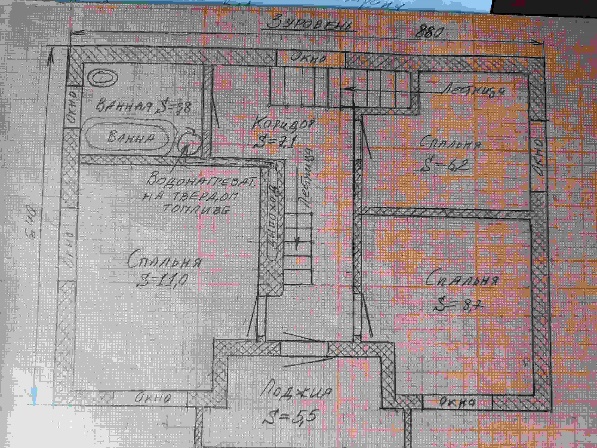 3 УРОВЕНЬ
880
ОКНО
ЛЕСТНИЦА
ОКНО
ВАННАЯ S=3,8
ВАННА
КОРИДОР
S=7,1
СПАЛЬНЯ
S=6,2
ОКНО
ЛЕСТНИЦА
ВОДОНАГРЕВАТ.
НА ТВЕРДОМ
ТОПЛИВЕ
ОКНО
СПАЛЬНЯ
S=11,0
СПАЛЬНЯ
S=8,7
ОКНО
ЛОДЖИЯ
S=5,5
ОКНО